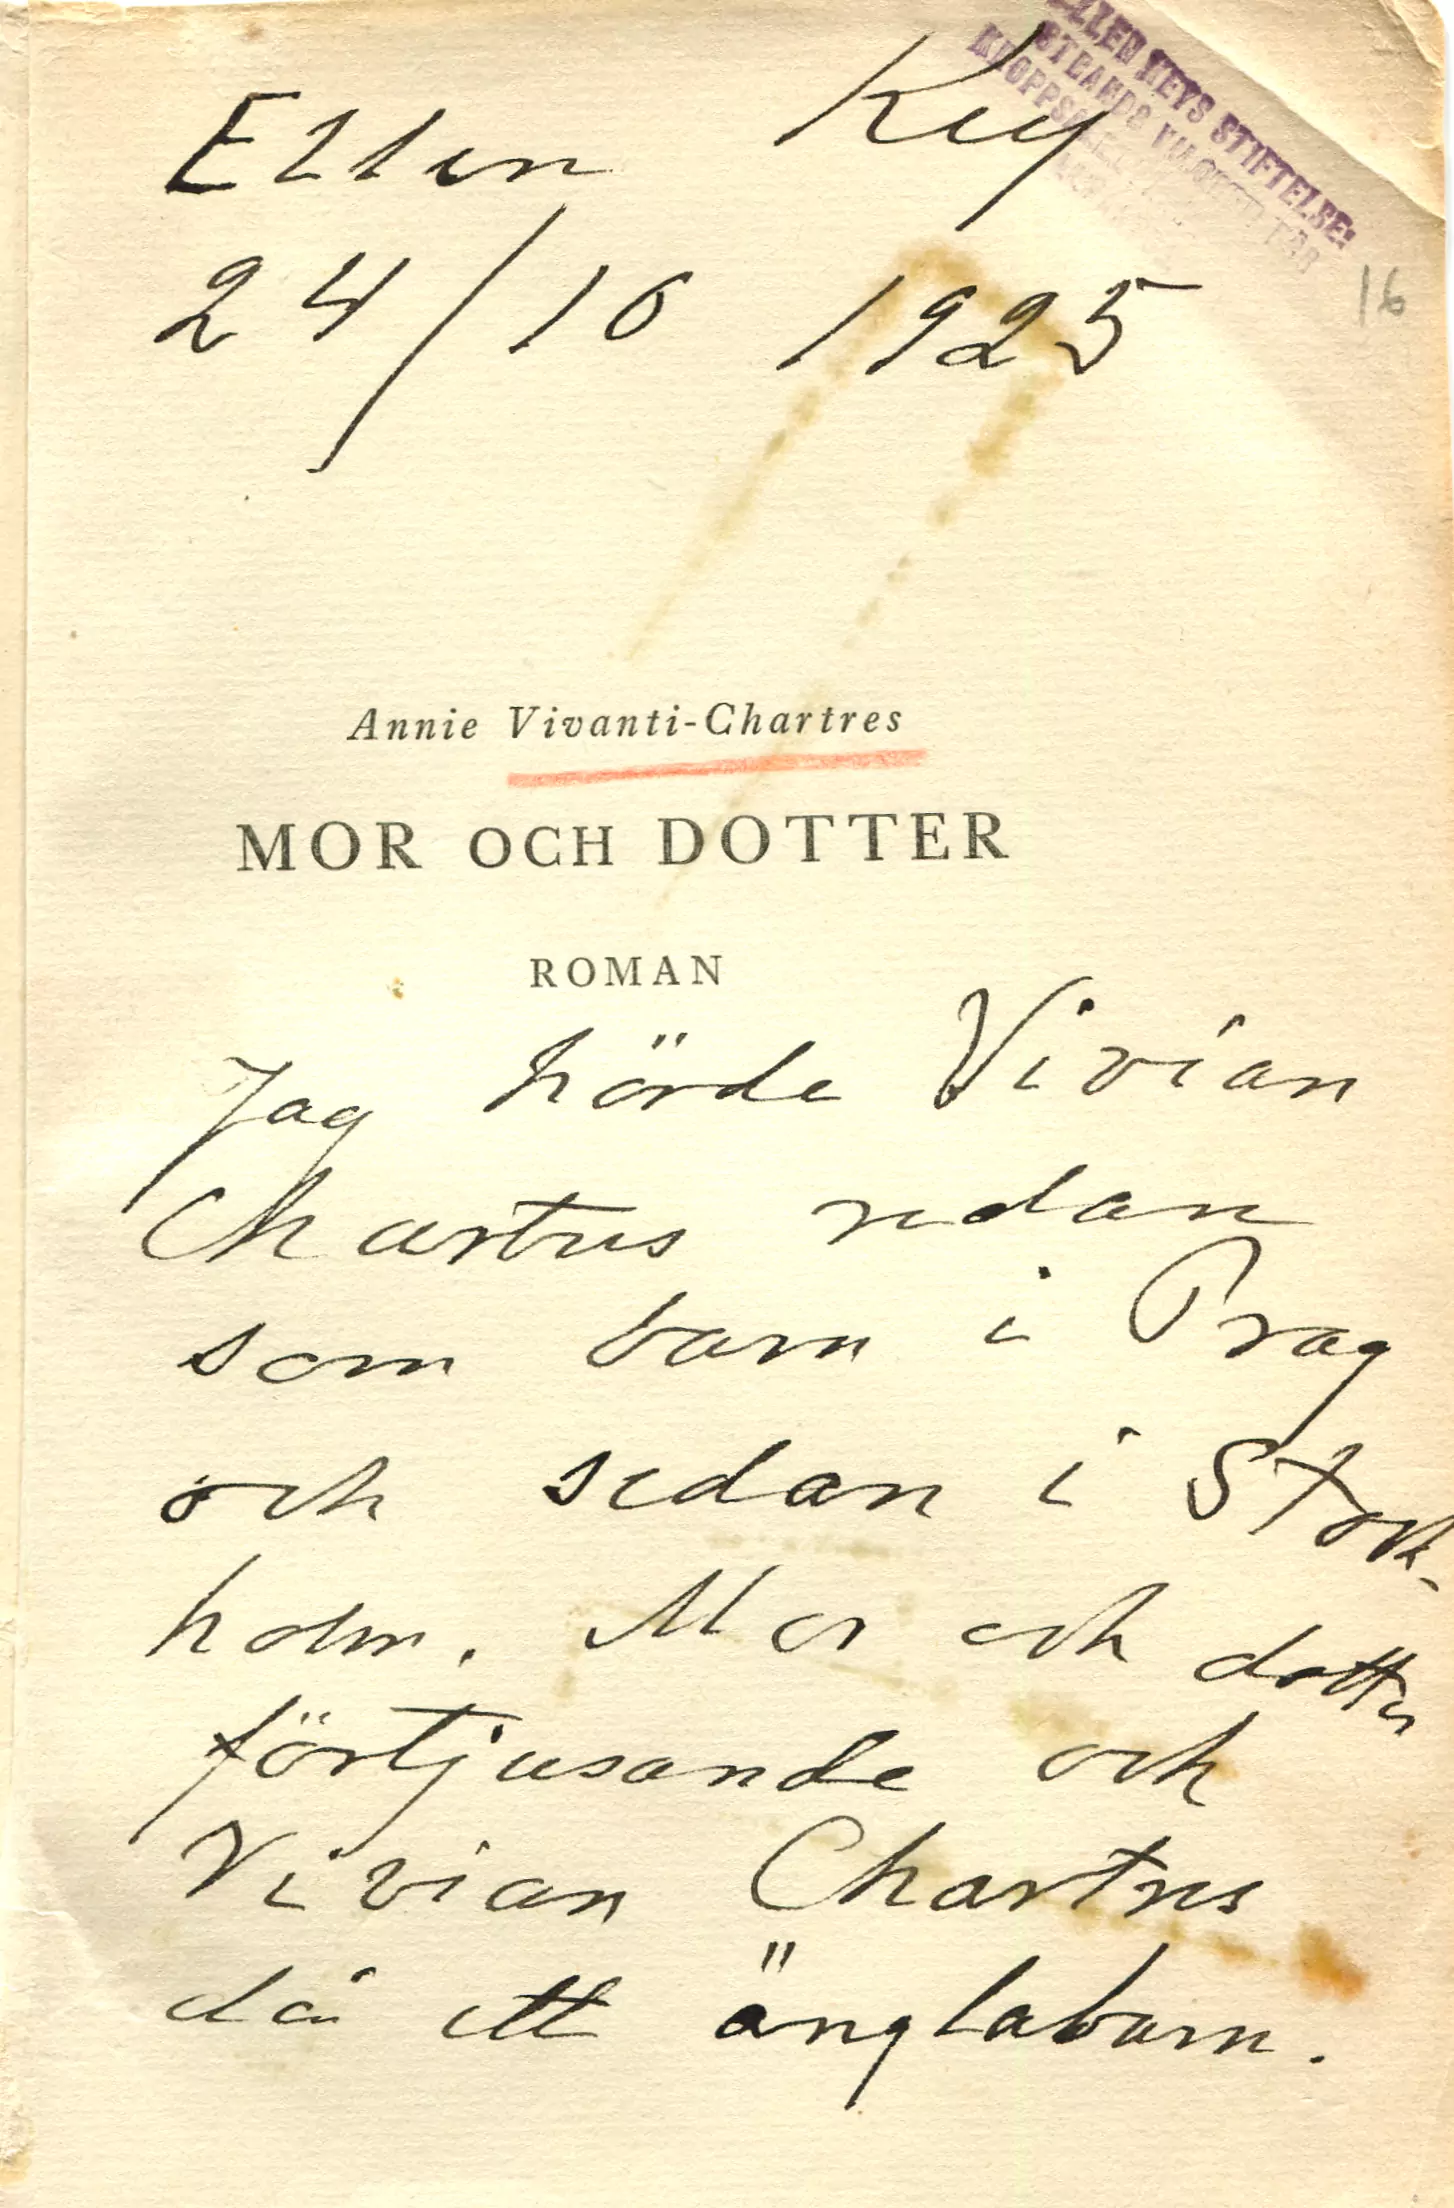 ELLEN KEYS STIFTELSE:
STRANDS
Ellen Key
24/10 1925
16
Annie Vivanti-Chartres
MOR OCH DOTTER
ROMAN
Jag hörde Vivian
Chartres redan
som barn i Prag
och sedan i Stock-
holm. Mor och dotter
förtjusande och
Vivian Chartres
då ett änglabarn.